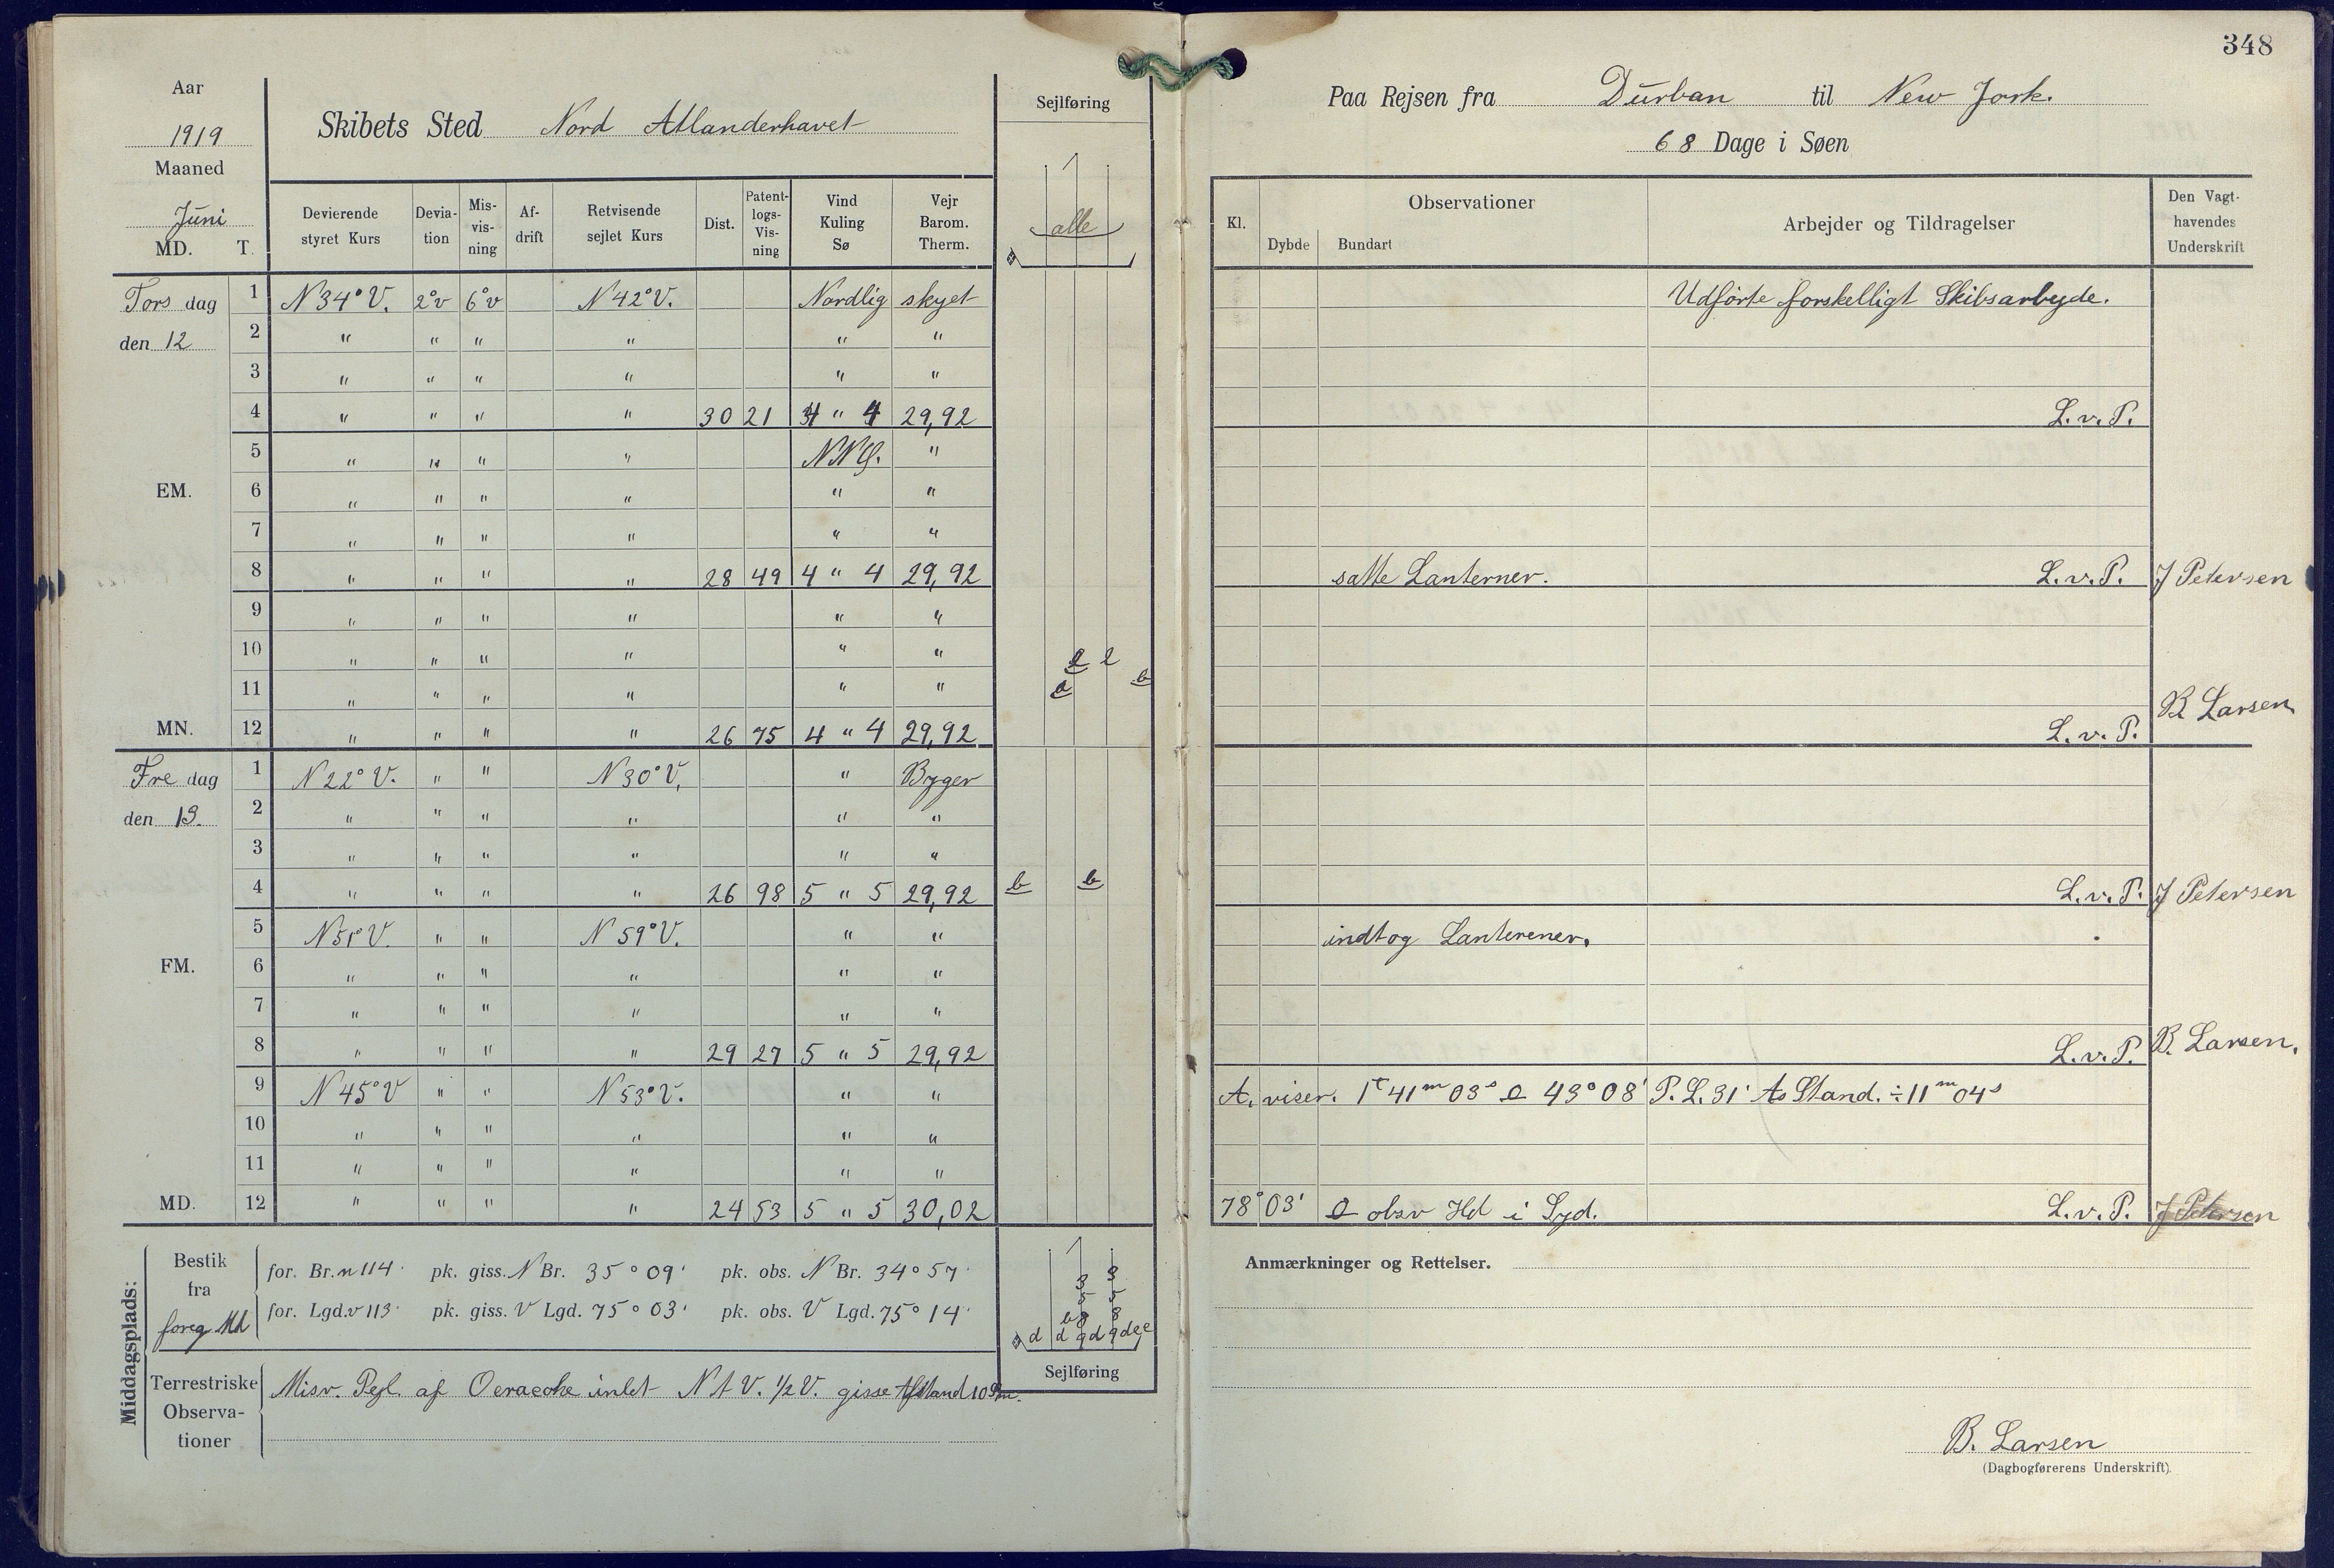 348
Aar
1919
Maaned
Juni
MD. T.
Skibets Sted Nord Atlanderhavet
Sejlføring
alle
Paa Rejsen fra Durban til New Jork.
68 Dage i Søen
Devierende styret Kurs | Devia-tion | Mis-vis-ning | Af-drift | Retvisende sejlet Kurs | Dist. | Patent-logs-Vis-ning | Vind Kuling Sø | Vejr Barom. Therm.
Kl. | Observationer | Dybde | Bundart | Arbejder og Tildragelser | Den Vagt-havendes Underskrift
Tors dag 1 N 34° V. 2°v 6°v N 42° V. Nordlig skyet Udførte forskelligt Skibsarbejde.
den 12 2 " " " " " "
3 " " " " " "
4 " " " " 30 21 4 " 4 29,92 L.v.P.
5 " " " " NNØ. "
EM. 6 " " " " " "
7 " " " " " "
8 " " " " 28 49 4 " 4 29,92 satte Lanterner. L.v.P. J Petersen
9 " " " " " "
10 " " " " " "
11 " " " " " "
MN. 12 " " " " 26 75 4 " 4 29,92 L.v.P. B Larsen
Fre dag 1 N 22° V. " " N 30° V. " Byger
den 13. 2 " " " " " "
3 " " " " " "
4 " " " " 26 98 5 " 5 29,92 b b L.v.P. J Petersen
5 N 51° V. " " N 59° V. " " indtog Lanterener.
FM. 6 " " " " " "
7 " " " " " "
8 " " " " 29 27 5 " 5 29,92 L.v.P. B. Larsen.
9 N 45° V " " N 53° V. " " A. viser. 1t 41m 03s 43° 08' P.L. 31' As Stand. ÷ 11m 04s
10 " " " " " "
11 " " " " " "
MD. 12 " " " " 24 53 5 " 5 30,02 78° 03' obsv Hd i Syd. L.v.P. J Petersen
Middagsplads:
Bestik fra foreg Md
for. Br. n 114' pk. giss. N Br. 35° 09' pk. obs. N Br. 34° 57'
for. Lgd. v 113' pk. giss. V Lgd. 75° 03' pk. obs. V Lgd. 75° 14'
Sejlføring
Terrestriske Observa-tioner
Misv. Pejl. af Ocracoke inlet N t V. 1/2 V. gisse Afstand 10 Sm.
Anmærkninger og Rettelser.
B. Larsen
(Dagbogførerens Underskrift).